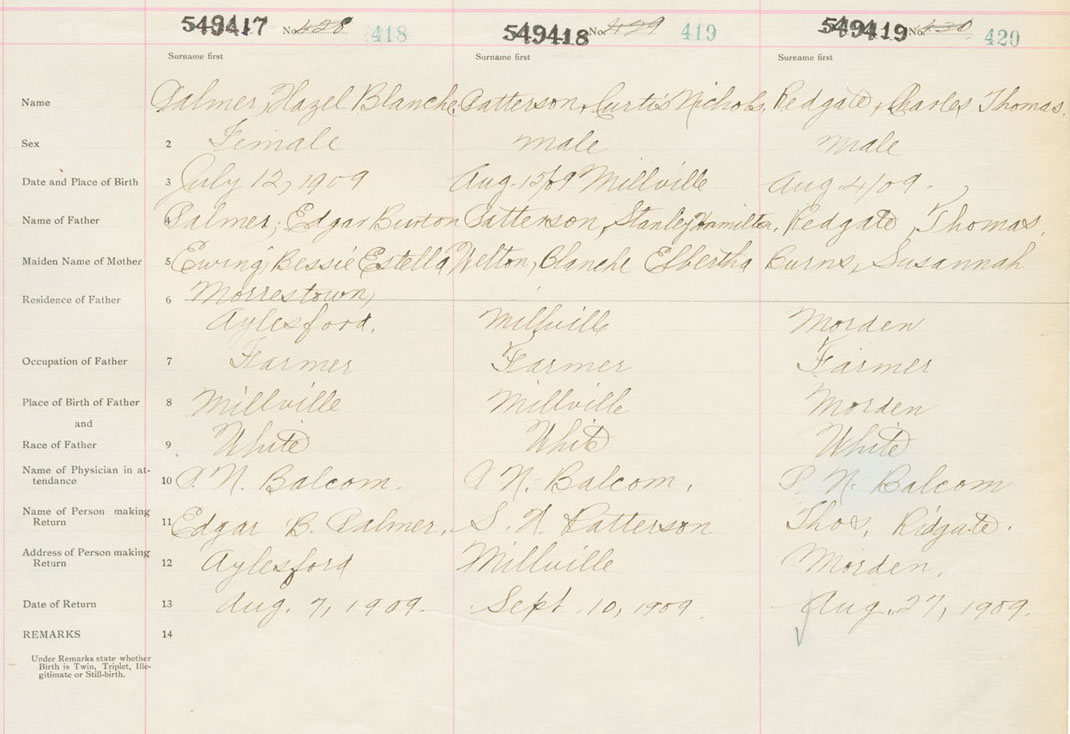 549417 No. 428 418 549418 No. 429 419 549419 No. 430 420
Surname first Surname first Surname first
Name Palmer, Hazel Blanche Patterson, Curtis Nichols, Redgate, Charles Thomas.
Sex 2 Female male male
Date and Place of Birth 3 July 12, 1909 Aug. 15/09 Millville Aug 4/09.
Name of Father 4 Palmer, Edgar Burton Patterson, Stanley Hamilton, Redgate, Thomas.
Maiden Name of Mother 5 Ewing, Bessie Estella Welton, Blanche Elbertha Burns, Susannah
Residence of Father 6 Morrestown,
Aylesford. Millville Morden
Occupation of Father 7 Farmer Farmer Farmer
Place of Birth of Father 8 Millville Millville Morden
and
Race of Father 9 White White White
Name of Physician in at-
tendance 10 N. Balcom. N. Balcom, P. N. Balcom
Name of Person making
Return 11 Edgar B. Palmer. S. H Patterson Thos. Ridgate.
Address of Person making
Return 12 Aylesford Millville Morden.
Date of Return 13 Aug. 7, 1909. Sept. 10, 1909 Aug. 27, 1909.
REMARKS 14
Under Remarks state whether
Birth is Twin, Triplet, Ille-
gitimate or Still-birth.